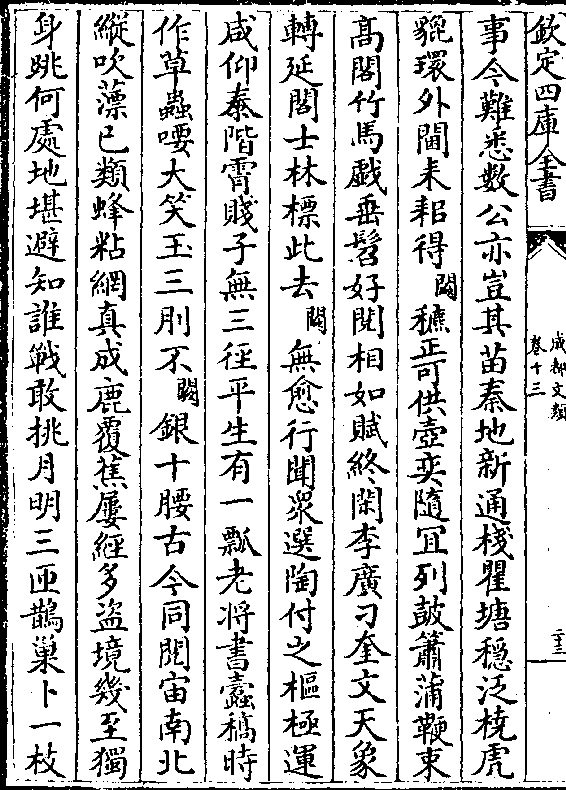 欽定四庫全書
成都文類
卷十三
二十三
事今難悉數公亦豈其苗秦地新通棧瞿塘穩泛橈虎
貔環外閫耒耜得闕穮正可供壺奕隨宜列鼓簫蒲鞭束
高閣竹馬戲垂髫好閱相如賦終閑李廣刁奎文天象
轉延閣士林標此去闕無愈行聞衆選陶付之樞極運
咸仰泰階霄賤子無三徑平生有一瓢老將書蠹稿時
作草蟲喓大笑玉三刖不闕銀十腰古今同閱宙南北
縱吹薸已類蜂粘網真成鹿覆蕉屢經多盜境幾至獨
身跳何處地堪避知誰戰敢挑月明三匝鵲巢卜一枝